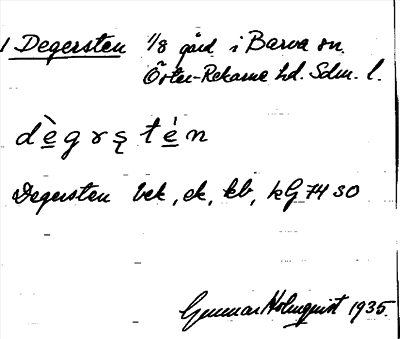 1 Degersten 1/8 gård i Barva sn.
Öster-Rekarne hd. Sdm. l.
dègrştén
Degersten bek, ek, kb, kG 74 SO
Gunnar Holmquist 1935.